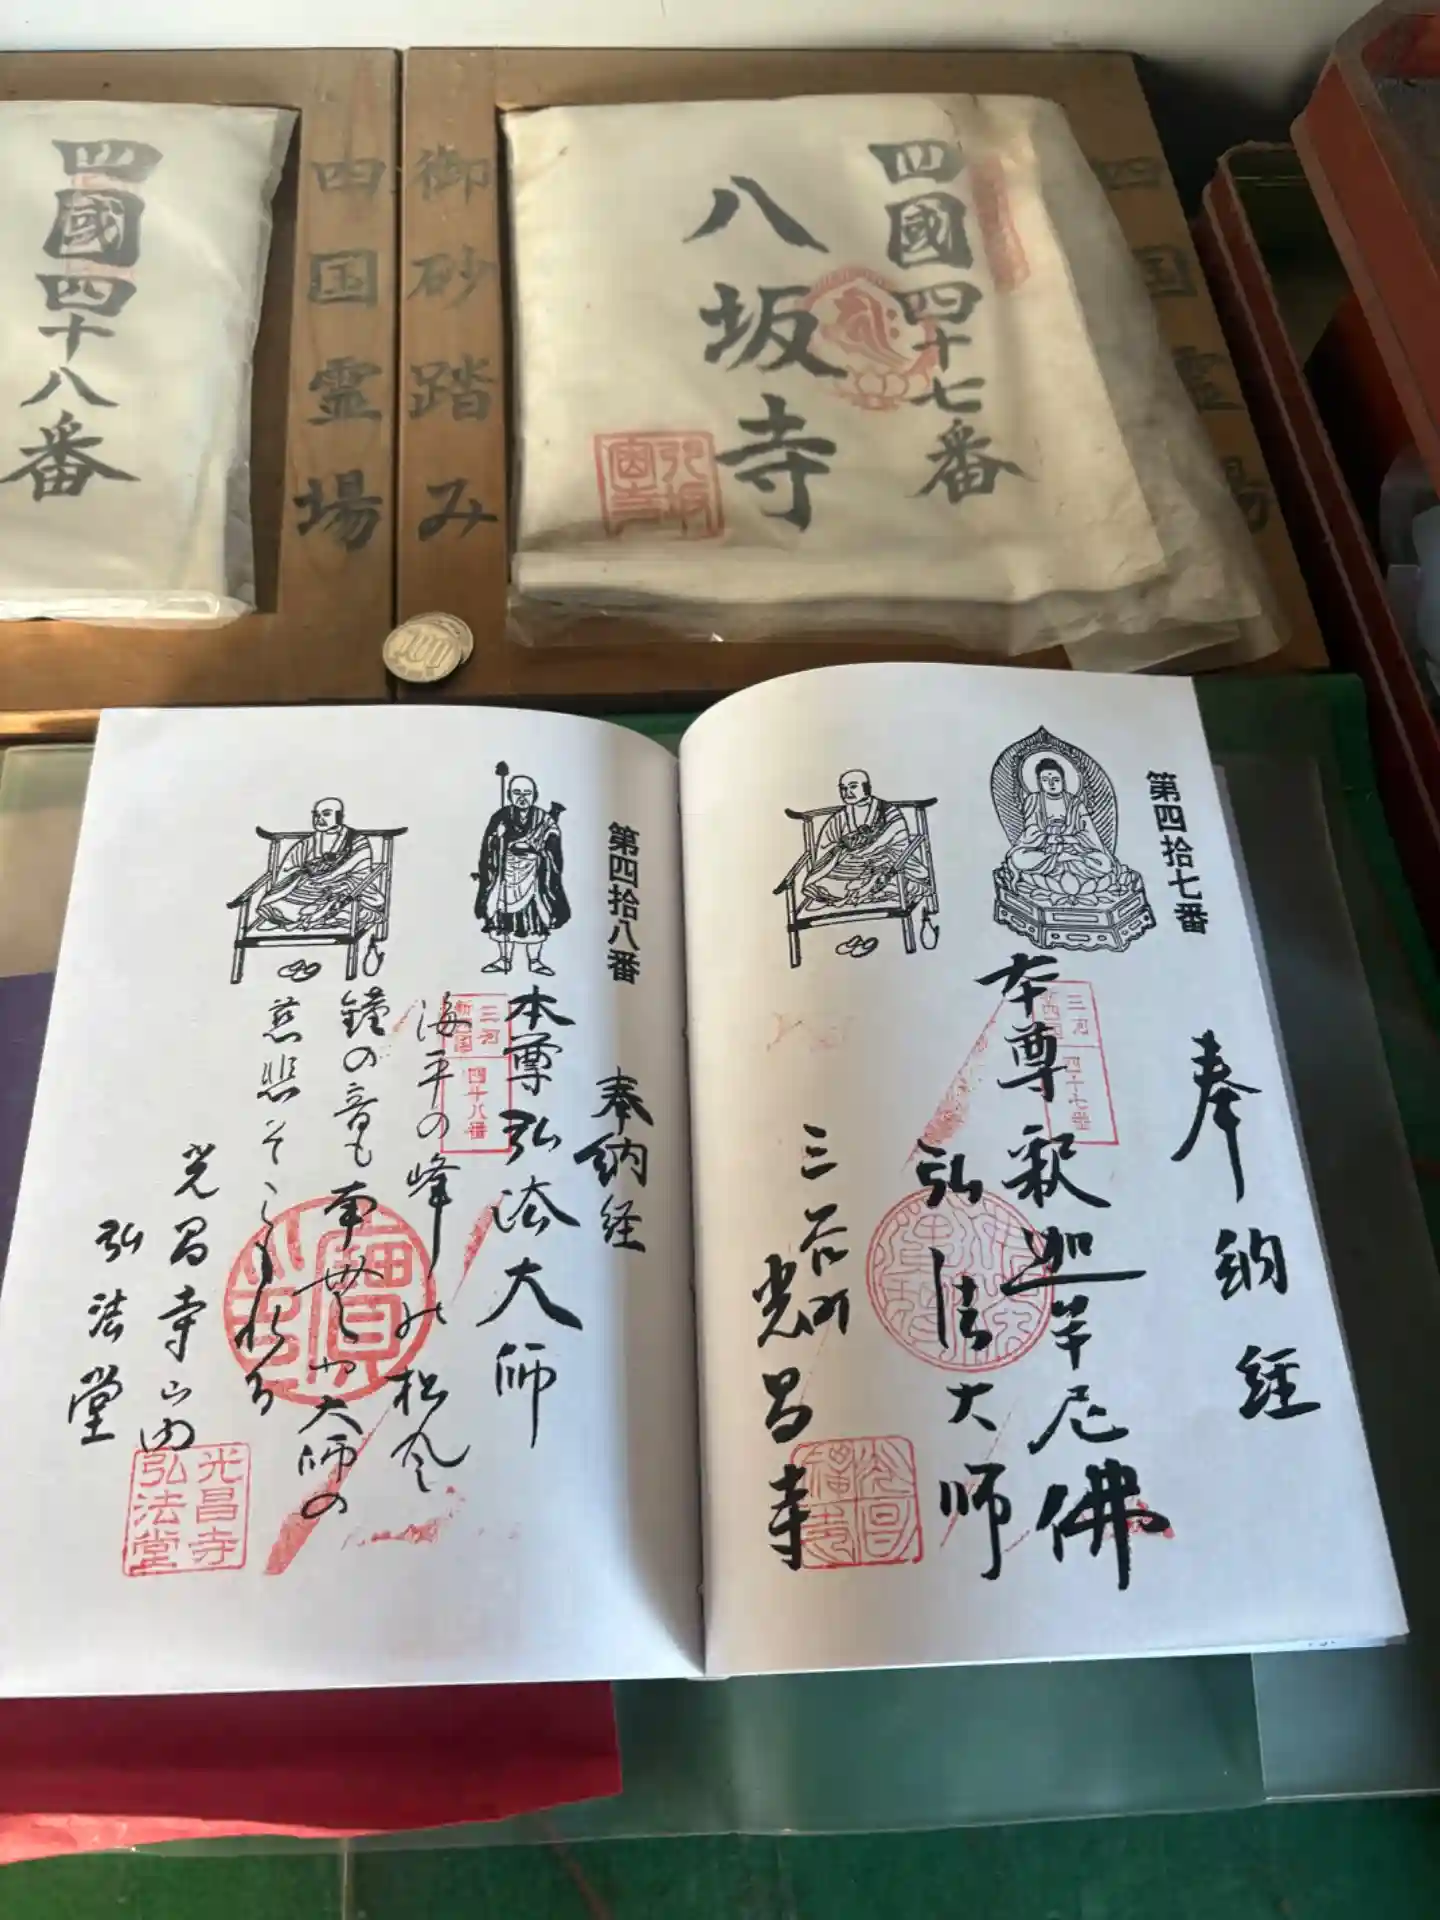 四國四十七番
八坂寺
八坂寺
御砂踏み
四国霊場
四国霊場
四國四十八番
100
第四拾七番
奉納経
本尊釈迦牟尼佛
弘法大師
三谷町
光昌寺
三河
新四国
四十七番
第四拾八番
奉納経
本尊弘法大師
海平の峰の松風
鐘の音も南無や大師の
慈悲そこもれる
光昌寺山内
弘法堂
三河
新四国
四十八番
寶印
光昌寺
弘法堂